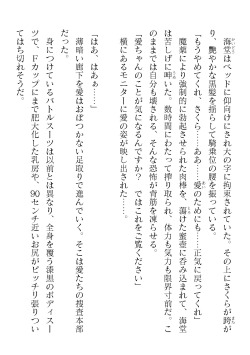 海堂はベッドに仰向けにされて大の字に拘束されていた。その上にさくらが跨が
り、艶やかな黒髪を揺らして騎乗位の腰を振っている。
「もうやめてくれ、さくら……ああ……愛のためにも……正気に戻ってくれ」
魔薬により強制的に勃起させられた肉棒を、蕩けた蜜壺に呑み込まれて、海堂
は苦しげに呻いた。数時間にわたって搾り取られ、体力も気力も限界寸前だ。こ
のままでは自分も壊される、そんな恐怖が背筋を凍らせる。
「愛ちゃんのことが気になるんですか？　ではこれをご覧ください」
横にあるモニターに愛の姿が映し出された……。
「はあ、はあぁ……」
薄暗い廊下を愛はおぼつかない足取りで進んでいく。そこは愛たちの捜査本部
だった。
身につけているバトルスーツは以前とは異なり、全身を覆う漆黒のボディスー
ツで、Ｆカップにまで肥大化した乳房や、90センチ近いお尻がピッチリ張りつい
てはち切れそうだ。